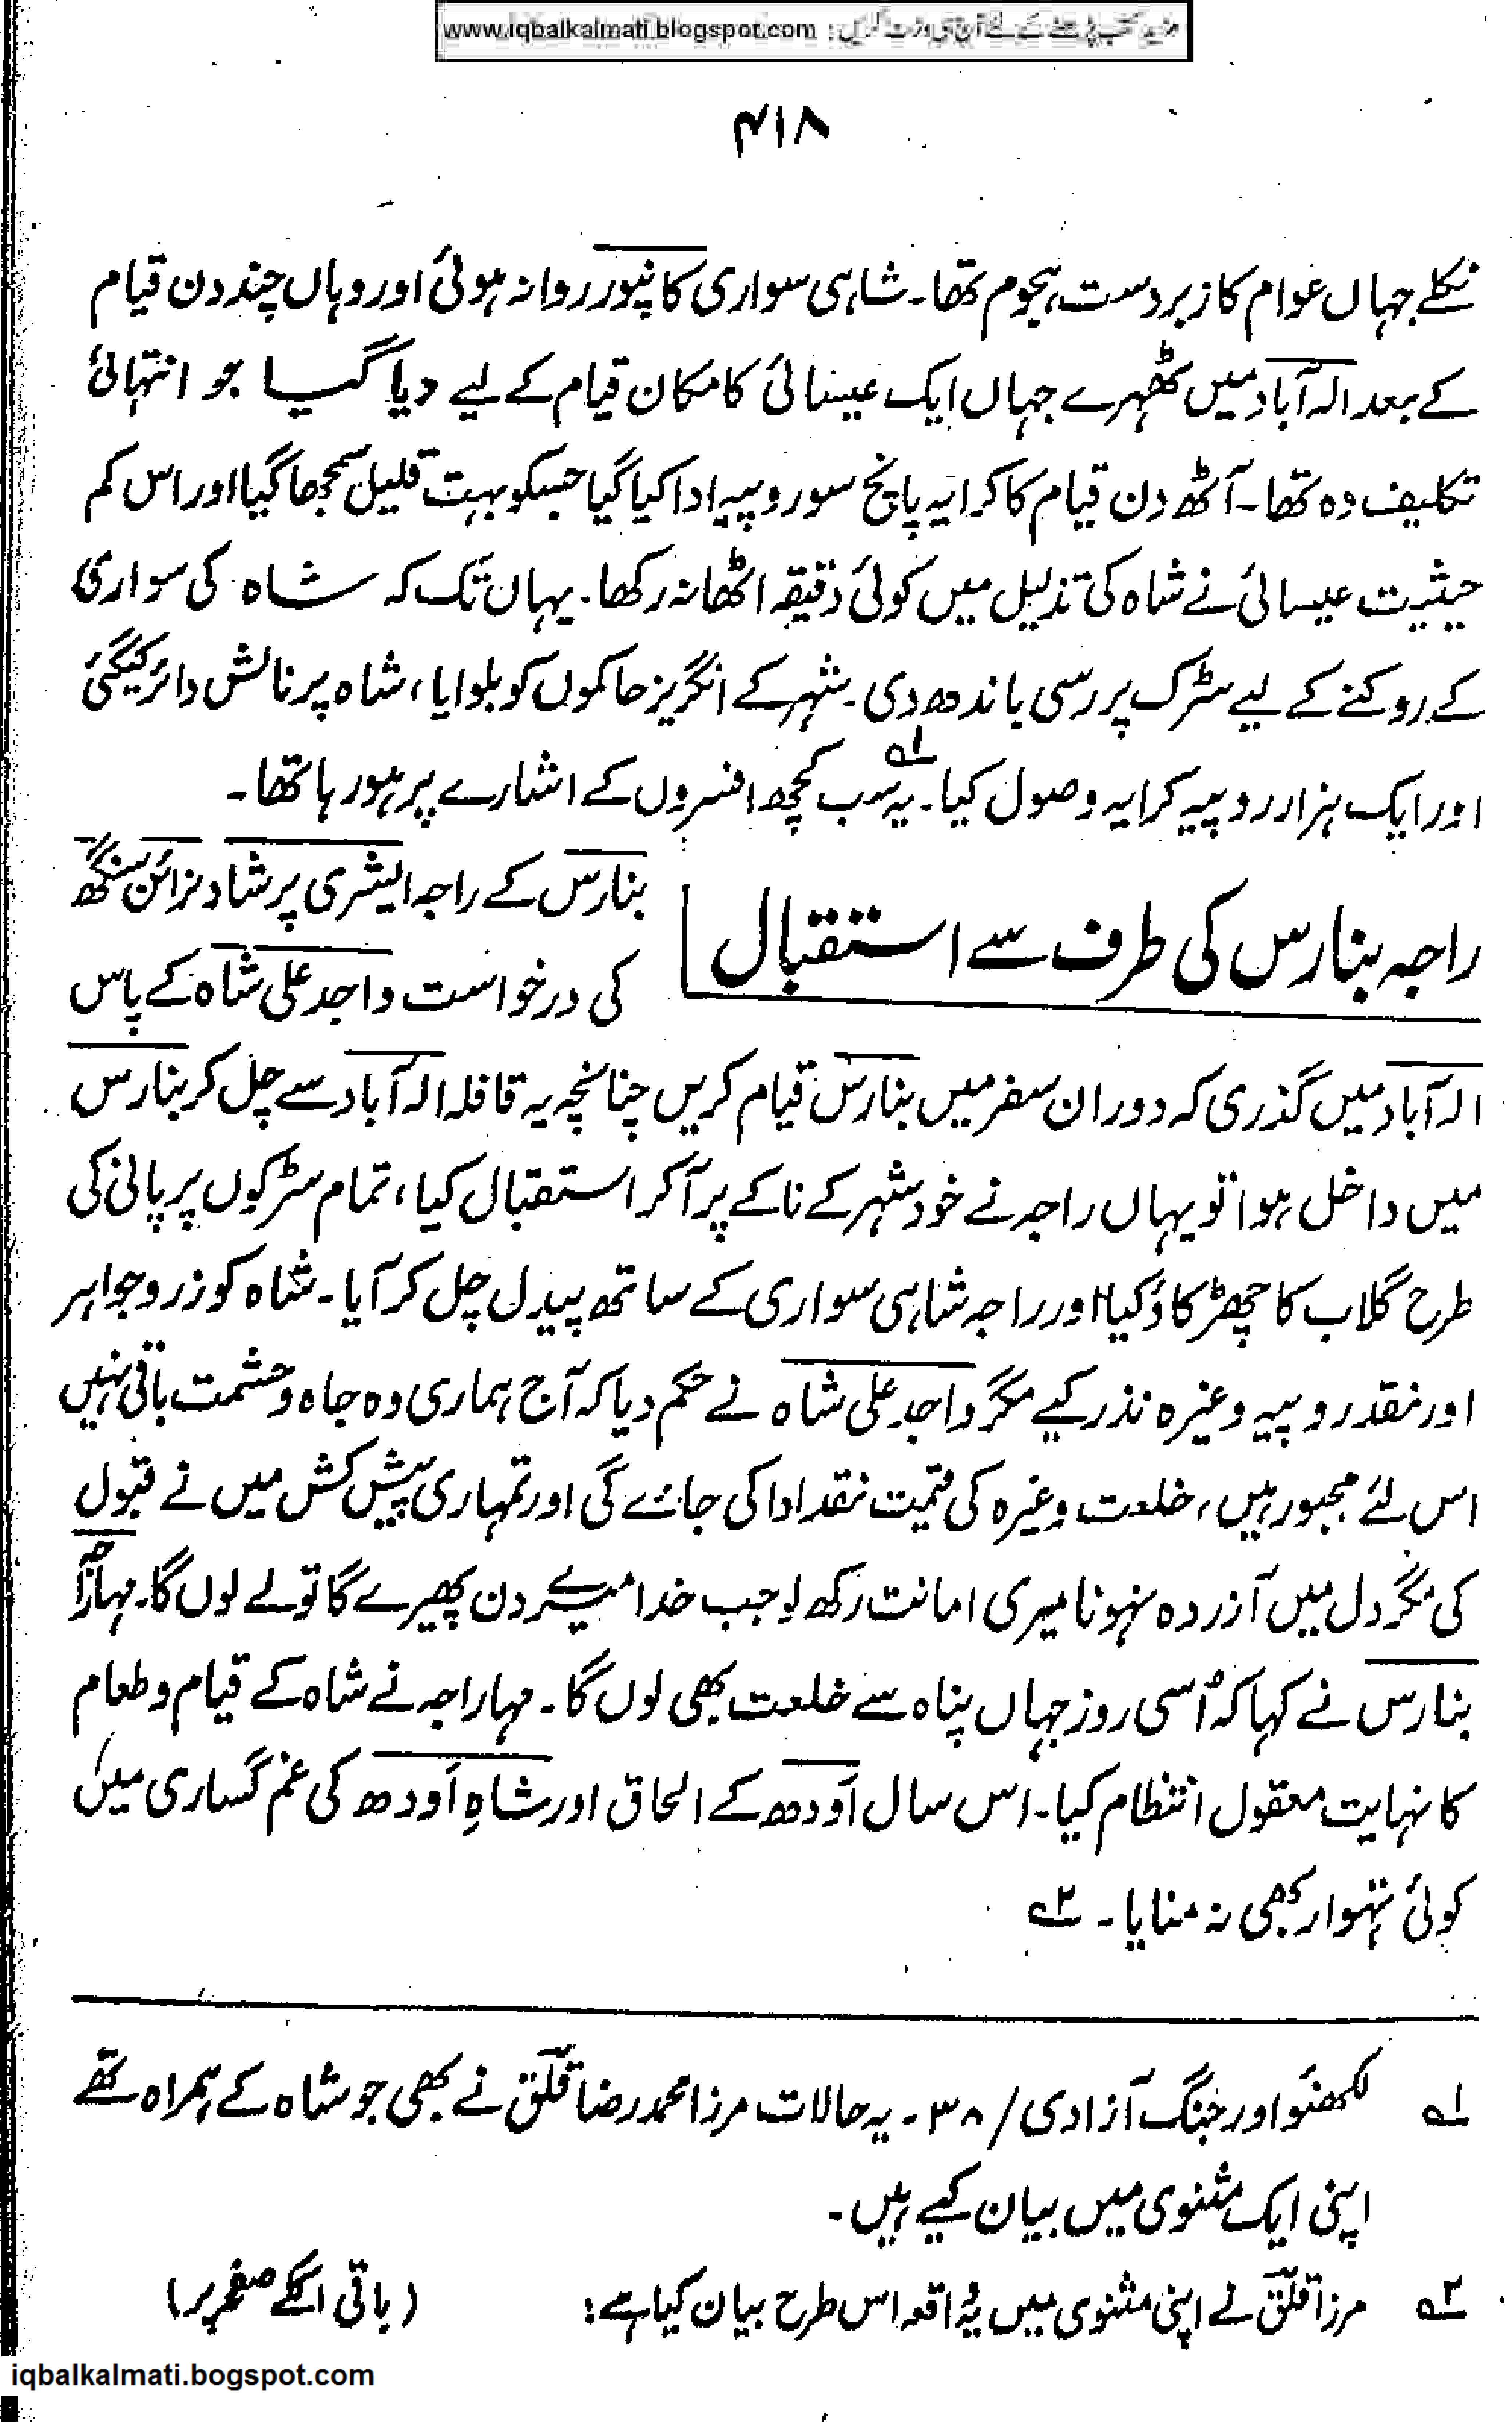 مزید کتب پڑھنے کے لئے آج ہی وزٹ کریں : www.iqbalkalmati.blogspot.com
۴۱۸
نکلے جہاں عوام کا زبردست ہجوم تھا۔ شاہی سواری کانپور روانہ ہوئی اور وہاں چند دن قیام
کے بعد الہ آباد میں ٹھہرے جہاں ایک عیسائی کا مکان قیام کے لیے دیا گیا جو انتہائی
تکلیف دہ تھا۔ آٹھ دن قیام کا کرایہ پانچ سو روپیہ ادا کیا گیا جسکو بہت قلیل سمجھا گیا اور اس کم
حیثیت عیسائی نے شاہ کی تذلیل میں کوئی دقیقہ اٹھا نہ رکھا۔ یہاں تک کہ شاہ کی سواری
کے روکنے کے لیے سڑک پر رسی باندھ دی۔ شہر کے انگریز حاکموں کو بلوایا، شاہ پر نالش دائر کیگئی
اور ایک ہزار روپیہ کرایہ وصول کیا۔ ۱؎ یہ سب کچھ افسروں کے اشارے پر ہو رہا تھا۔
راجہ بنارس کی طرف سے استقبال
بنارس کے راجہ ایشری پرشاد نرائن سنگھ
کی درخواست واجد علی شاہ کے پاس
الہ آباد میں گذری کہ دوران سفر میں بنارس قیام کریں چنانچہ یہ قافلہ الہ آباد سے چل کر بنارس
میں داخل ہوا تو یہاں راجہ نے خود شہر کے ناکے پر آکر استقبال کیا، تمام سڑکوں پر پانی کی
طرح گلاب کا چھڑکاؤ کیا اور راجہ شاہی سواری کے ساتھ پیدل چل کر آیا۔ شاہ کو زر و جواہر
اور نقد روپیہ وغیرہ نذر کیے مگر واجد علی شاہ نے حکم دیا کہ آج ہماری وہ جاہ و حشمت باقی نہیں
اس لئے مجبور ہیں، خلعت وغیرہ کی قیمت نقد ادا کی جائے گی اور تمہاری پیش کش میں نے قبول
کی مگر دل میں آزردہ نہونا میری امانت رکھ لو جب خدا میرے دن پھیرے گا تو لے لوں گا۔ مہاراجہ
بنارس نے کہا کہ اُسی روز جہاں پناہ سے خلعت بھی لوں گا۔ مہاراجہ نے شاہ کے قیام و طعام
کا نہایت معقول انتظام کیا۔ اس سال اَودھ کے الحاق اور شاہِ اَودھ کی غم گساری میں
کوئی تہوار بھی نہ منایا۔ ۲؎
۱؎ لکھنؤ اور جنگ آزادی / ۳۸۔ یہ حالات مرزا محمد رضا قلق نے بھی جو شاہ کے ہمراہ تھے
اپنی ایک مثنوی میں بیان کیے ہیں۔
۲؎ مرزا قلق نے اپنی مثنوی میں یہ واقعہ اس طرح بیان کیا ہے : (باقی اگلے صفحہ پر)
iqbalkalmati.bogspot.com